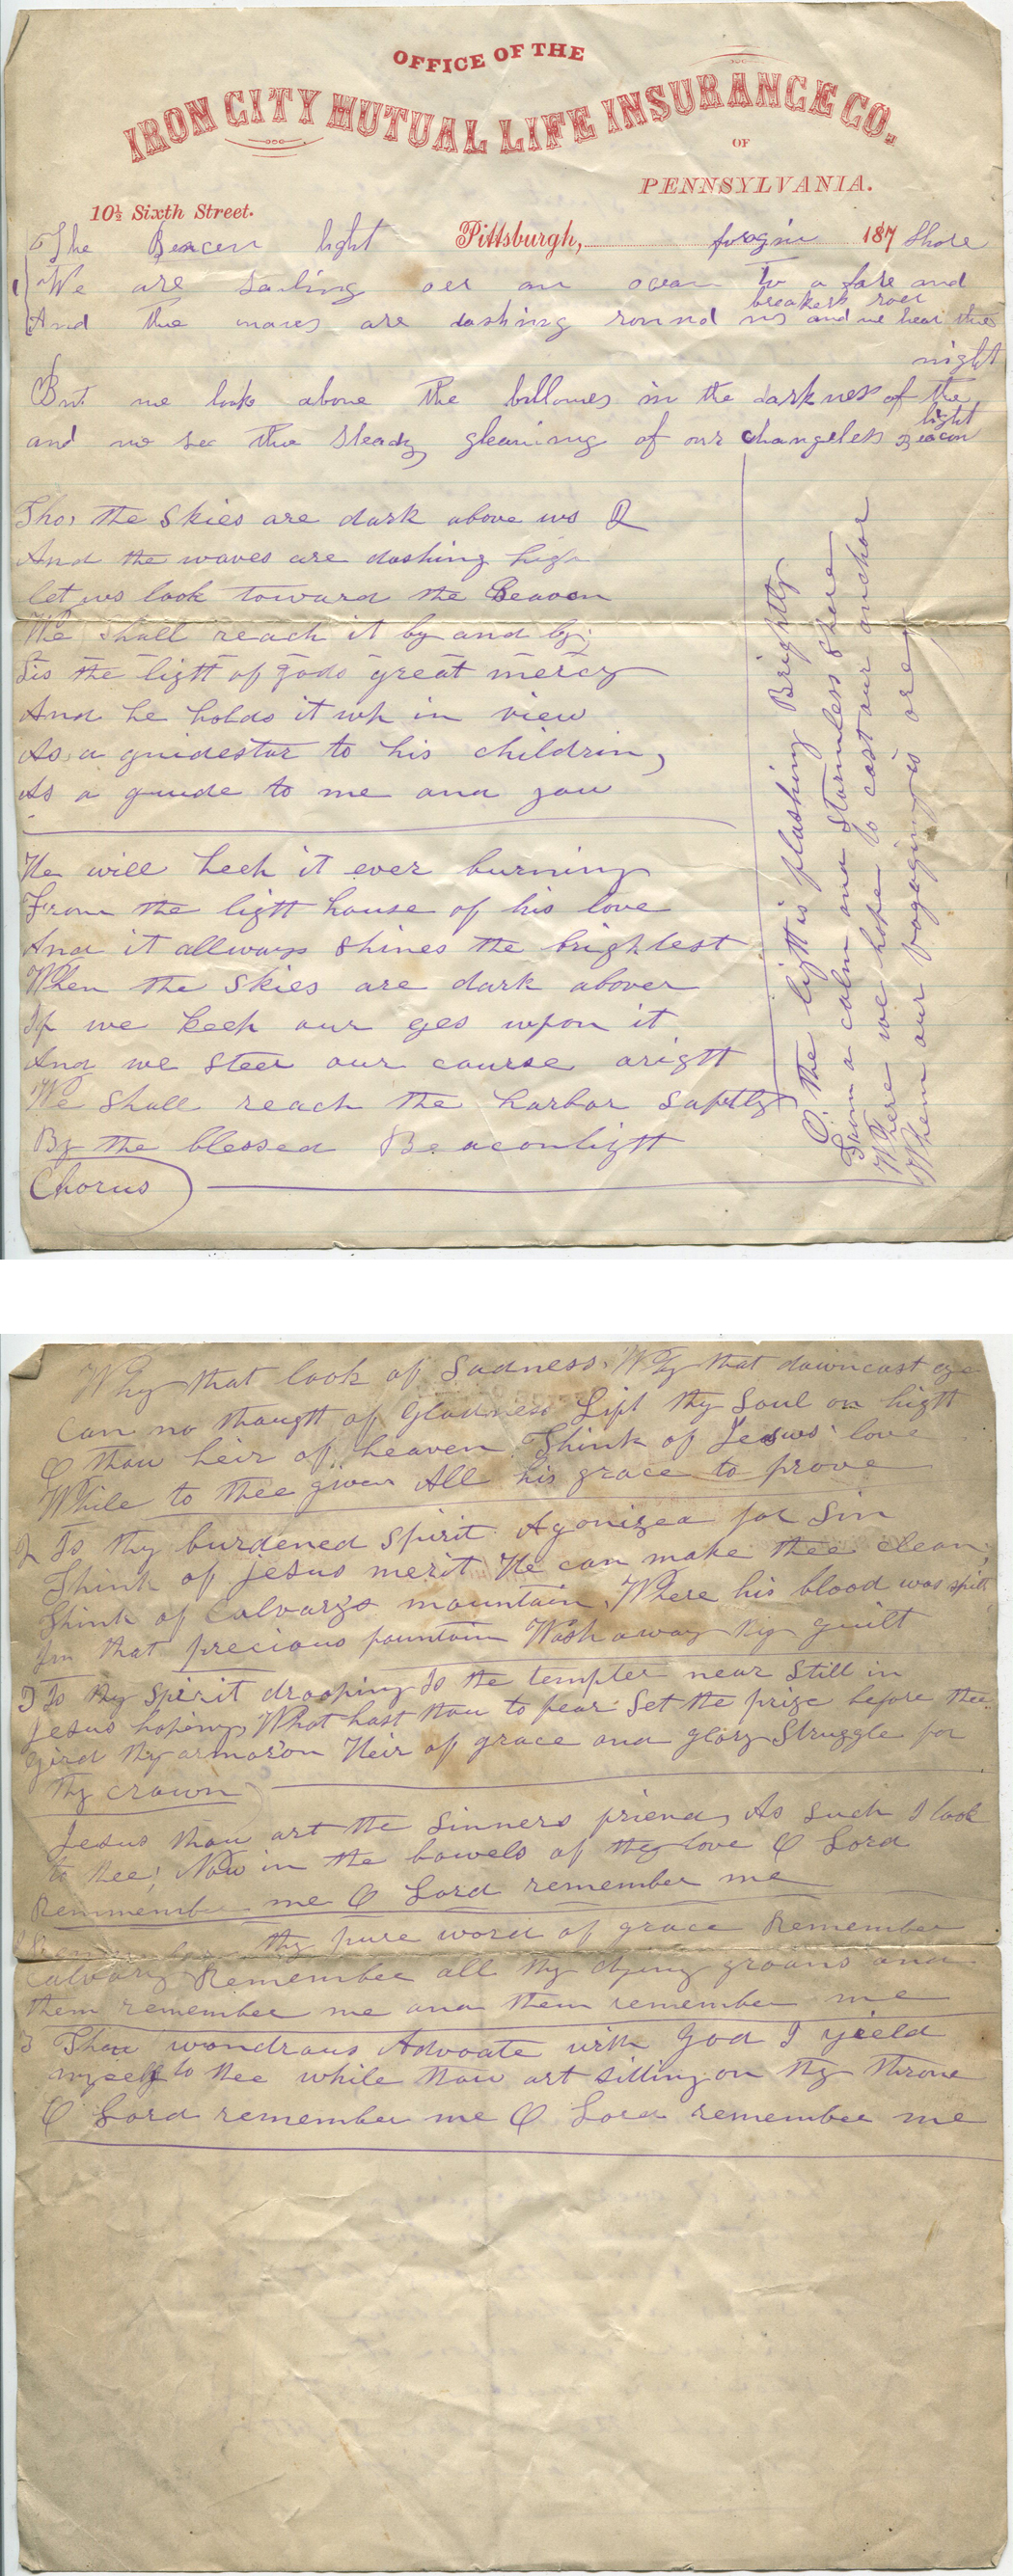 OFFICE OF THE
IRON CITY MUTUAL LIFE INSURANCE CO.
OF
PENNSYLVANIA.
10½ Sixth Street.
The Beacen light Pittsburgh, foragin 187 Shore
1 We are sailing oer an ocean To a fare and
breakers roer
And the waves are dashing round us and we hear the
night
But we look above the billowes in the darkness of the
light
and we see the steady gleaming of our changeless Beacon
Tho, the skies are dark above us 2
And the waves are dashing high
let us look toward the Beacon
We shall reach it by and by;
Tis the ligtt of gods great mercy
And he holds it up in view
As a guidestar to his childrin,
As a guide to me and you
He will keek it ever burning
From the ligtt house of his love
And it allways shines the brightest
When the skies are dark abover
If we keep our yes upon it
And we steer our course arigtt
We shall reach the harbor saftly
By the blessed Beaconligtt
Chorus
O, the ligtt is flashing Brightly
From a calm and stormless shore
Where we hope to cast our anchor
When our vogaging is orer
Why that look of Sadness. Why that downcast eye
Can no thougtt of Gladness Lift thy soul on higtt
O thou heir of heaven Think of Jesus love
While to thee given All his grace to prove
2 Is thy burdened spirit Agonized for sin
Think of jesus merit He can make thee clean;
Think of Calvarys mountain, Where his blood was spilt
In that precious fountain Wash away thy guilt
3 Is thy spirit drooping Is the tempter near Still in
Jesus hoping, What hast thou to fear Set the prize before thee
gird thy armor on Heir of grace and glory Struggle for
thy crown
Jesus thou art the sinners friend, As such I look
to thee; Now in the bowels of thy love O Lord
Remmember me O Lord remember me
thy pure word of grace Remember
Calvary Remember all thy dying groans and
them remember me and them remember me
3 Thou wondrous Advoate with God I yield
myself to thee while thou art sitting on thy throne
O Lord remember me O Lord remember me